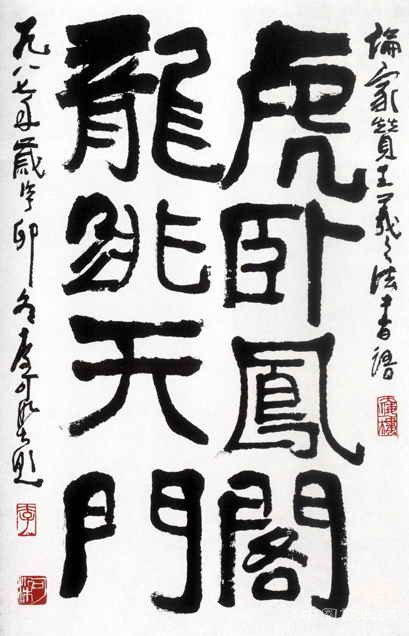 論家贊王羲之法書語
虎卧鳳閣
龍跳天門
一九八七年歲丁卯冬李可染題
李
可染